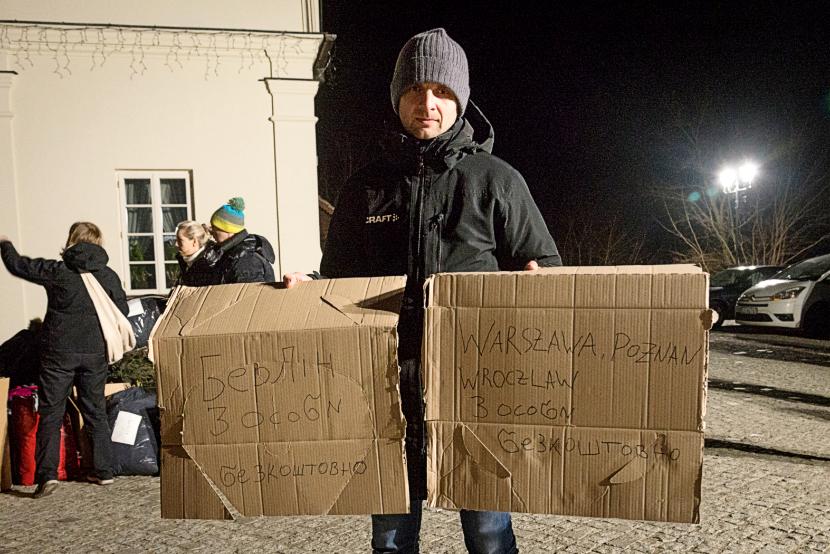 CRAFT
Берлін
3 особи
безкоштовно
WARSZAWA, POZNAN
WROCZLAW
3 особи
безкоштовно